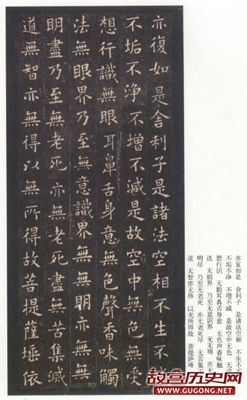 亦復如是舍利子是諸法空相不生不滅
不垢不淨不增不減是故空中無色無受
想行識無眼耳鼻舌身意無色聲香味觸
法無眼界乃至無意識界無無明亦無無
明盡乃至無老死亦無老死盡無苦集滅
道無智亦無得以無所得故菩提薩埵依
亦复如是 舍利子 是诸法空相 不生不
不垢不净 不增不减 是故空中无色 无
想行识 无眼耳鼻舌身意 无色声香味触
法 无眼界 乃至无意识界 无无明 亦
明尽 乃至无老死 亦无老死尽 无苦
道 无智亦无得 以无所得故 菩提萨埵
故宫历史网
www.GUGONG.net